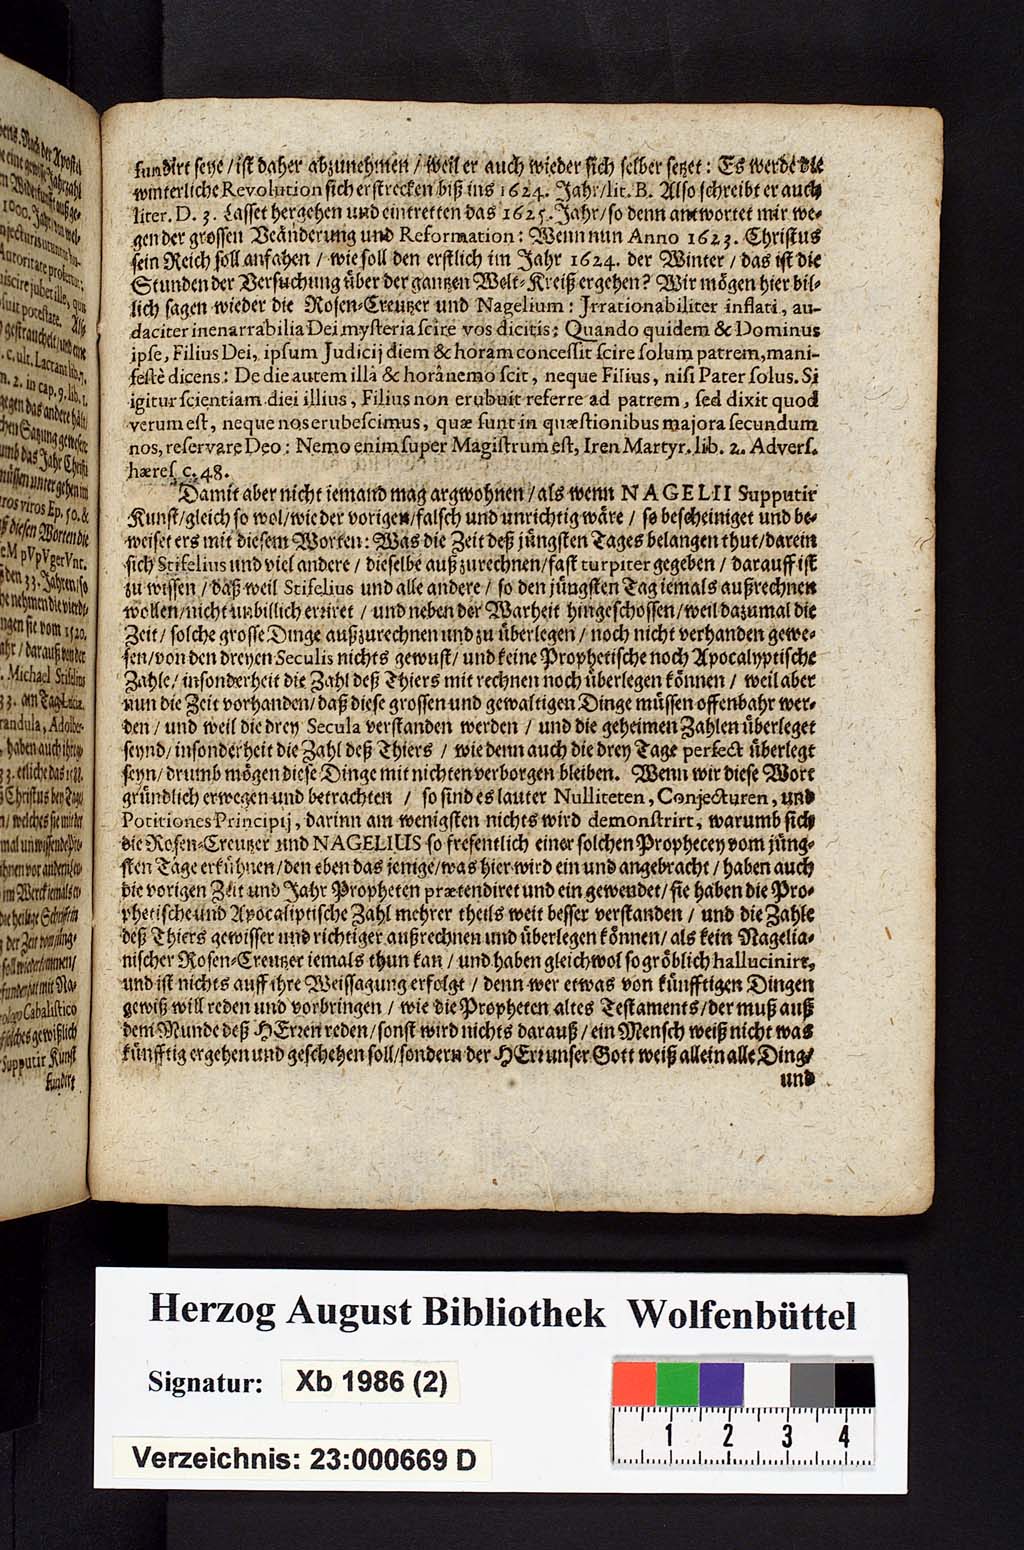 bens. Nach der Apostel
1000. Jahr/
Autoritate proferunt;
. c. ult. Lactant. lib. 7.
n. 2. in cap. 9. lib. 1.
gegen das andere hält/
chen Satzung geweckt
umb das Jahr Christi
müssen untergehen im
ros viros Ep. 50. &
ß diesen Worten die
eM pVpVgerVnt.
ß den 33. Jahren/ so
he nehmen die vierdt-
ngen sie vom 1520.
ahr / darauß von der
. Michael Stifelius
33. am Tag Lucæ.
randula, Adolbe-
, haben auch ihrer
33. etliche das 1588.
ß Christus ben Tage
n/ welches sie mit der
mal unwissende Pro-
ihnen vor andern Zei-
im Werck iemals er-
die heilige Schrifft in
g der Zeit vom jüng-
soll wiederkommen/
sunder hat mit Na-
Cabalistico
solches gewißlich
Supputir Kunst
fundirt
fundirt seye / ist daher abzunehmen / weil er auch wieder sich selber setzet: Es werde die
winterliche Revolution sich erstrecken biß ins 1624. Jahr/ lit. B. Also schreibt er auch
liter. D. 3. Lasset hergehen und eintretten das 1625. Jahr/ so denn antwortet mir we-
gen der grossen Veänderung und Reformation: Wenn nun Anno 1623. Christus
sein Reich soll anfahen / wie soll den erstlich im Jahr 1624. der Winter / das ist die
Stunden der Versuchung über der gantzen Welt-Kreiß ergehen? Wir mögen hier bil-
lich sagen wieder die Rosen-Creutzer und Nagelium: Jrrationabiliter inflati, au-
daciter inenarrabilia Dei mysteria scire vos dicitis: Quando quidem & Dominus
ipse, Filius Dei, ipsum Judicij diem & horam concessit scire solum patrem, mani-
festè dicens: De die autem illâ & horâ nemo scit, neque Filius, nisi Pater solus. Si
igitur scientiam diei illius, Filius non erubuit referre ad patrem, sed dixit quod
verum est, neque nos erubescimus, quæ sunt in quæstionibus majora secundum
nos, reservare Deo: Nemo enim super Magistrum est, Iren. Martyr. lib. 2. Advers.
hæres. c. 48.
Damit aber nicht iemand mag argwohnen / als wenn NAGELII Supputir
Kunst/ gleich so wol/ wie der vorigen/ falsch und unrichtig wäre / so bescheiniget und be-
weiset ers mit diesem Worten: Was die Zeit deß jüngsten Tages belangen thut/ darein
sich Stifelius und viel andere / dieselbe auß zurechnen/ fast turpiter gegeben / darauff ist
zu wissen / daß weil Stifelius und alle andere / so den jüngsten Tag iemals außrechnen
wollen / nicht unbillich erriret / und neben der Warheit hingeschossen / weil dazumal die
Zeit / solche grosse Dinge außzurechnen und zu überlegen / noch nicht verhanden gewe-
sen/ von den dreyen Seculis nichts gewust / und keine Prophetische noch Apocalyptische
Zahle / insonderheit die Zahl deß Thiers mit rechnen noch überlegen können / weil aber
nun die Zeit vorhanden/ daß diese grossen und gewaltigen Dinge müssen offenbahr wer-
den / und weil die drey Secula verstanden werden / und die geheimen Zahlen überleget
seynd/ insonderheit die Zahl deß Thiers / wie denn auch die drey Tage perfect überlegt
seyn/ drumb mögen diese Dinge mit nichten verborgen bleiben. Wenn wir diese Wort
gründlich erwegen und betrachten / so sind es lauter Nulliteten, Conjecturen, und
Potitiones Principij, darinn am wenigsten nichts wird demonstrirt, warumb sich
die Rosen-Creutzer und NAGELIUS so frefentlich einer solchen Prophecey vom jüng-
sten Tage erkühnen/ den eben das jenige/ was hier wird ein und angebracht / haben auch
die vorigen Zeit und Jahr Propheten prætendiret und ein gewendet/ sie haben die Pro-
phetische und Apocaliptische Zahl mehrer theils weit besser verstanden / und die Zahle
deß Thiers gewisser und richtiger außrechnen und überlegen können/ als kein Nagelia-
nischer Rosen-Creutzer iemals thun kan / und haben gleichwol so gröblich hallucinirt,
und ist nichts auff ihre Weissagung erfolgt / denn wer etwas von künfftigen Dingen
gewiß will reden und vorbringen / wie die Propheten altes Testaments/ der muß auß
dem Munde deß HErren reden/ sonst wird nichts darauß/ ein Mensch weiß nicht was
künfftig ergehen und geschehen soll/ sondern der HErr unser Gott weiß allein alle Ding/
und
Herzog August Bibliothek Wolfenbüttel
Signatur: Xb 1986 (2)
1 2 3 4
Verzeichnis: 23:000669 D